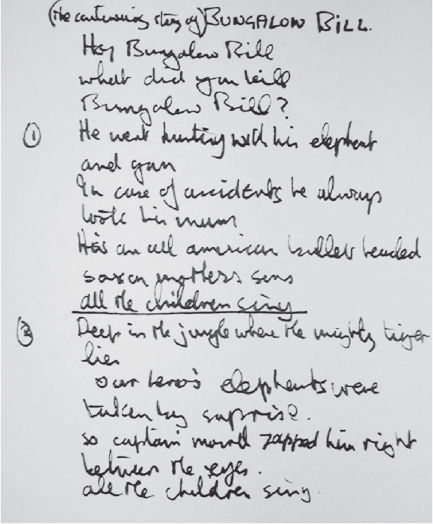 (the continuing story of) BUNGALOW BILL.
Hey Bungalow Bill
what did you kill
Bungalow Bill?
① He went hunting with his elephant
and gun
In case of accidents he always
took his mum
He's an all american bullet headed
saxon mothers sons
all the children sing
② Deep in the jungle where the mighty tiger
lies
our hero's elephants were
taken by surprise.
so captain marvel zapped him right
between the eyes.
all the children sing.